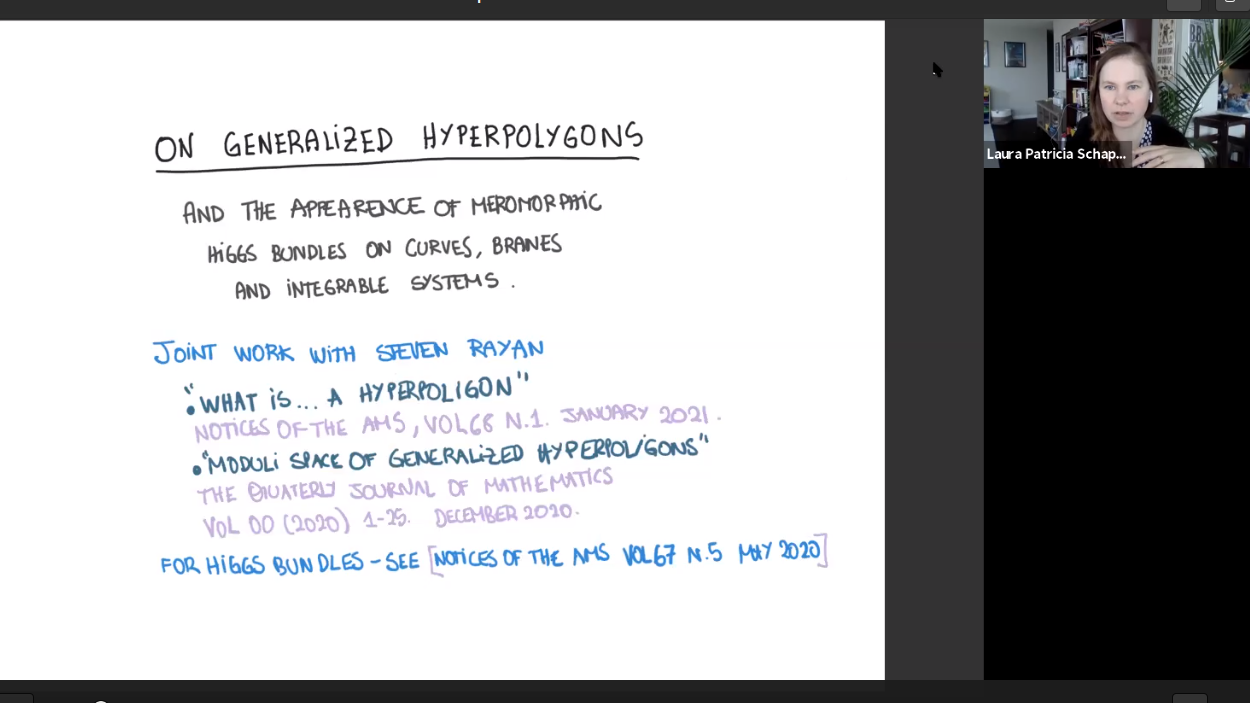 ON GENERALIZED HYPERPOLYGONS
AND THE APPEARENCE OF MEROMORPHIC
HIGGS BUNDLES ON CURVES, BRANES
AND INTEGRABLE SYSTEMS.
JOINT WORK WITH STEVEN RAYAN
• "WHAT IS... A HYPERPOLIGON"
NOTICES OF THE AMS, VOL68 N.1. JANUARY 2021.
• "MODULI SPACE OF GENERALIZED HYPERPOLYGONS"
THE QUATERLY JOURNAL OF MATHEMATICS
VOL 00 (2020) 1-25. DECEMBER 2020.
FOR HIGGS BUNDLES - SEE [NOTICES OF THE AMS VOL67 N.5 MAY 2020]
Laura Patricia Schap...